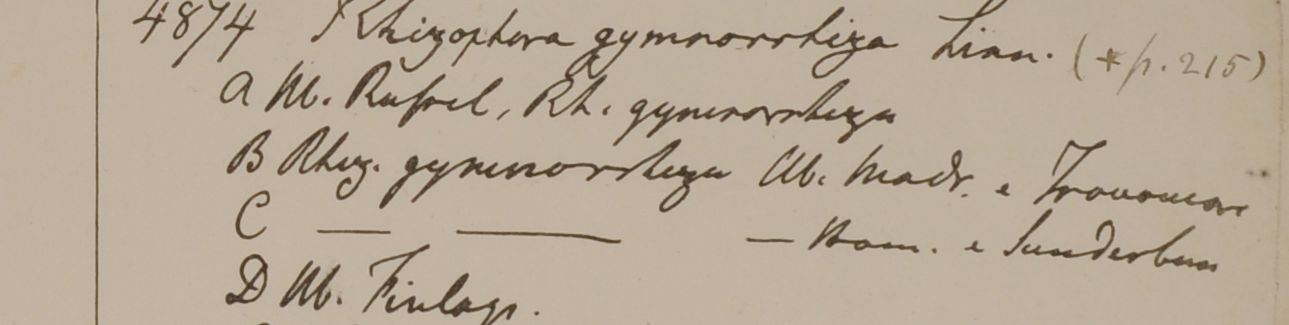 4874 Rhizophora gymnorrhiza Linn. (*p. 215)
A Hb. Russel, Rh. gymnorrhiza
B Rhiz. gymnorrhiza Hb. Madr. e
C — — — Ham. e Sunderbun
D Hb. Finlays.